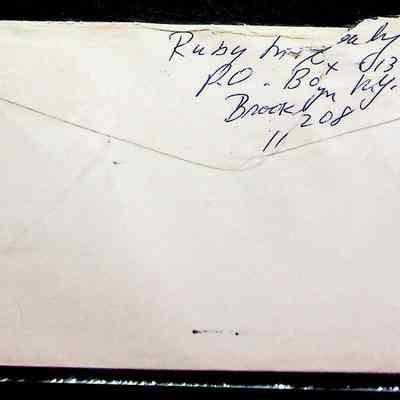 Ruby
P.O. Box 013
Brooklyn N.Y.
11208